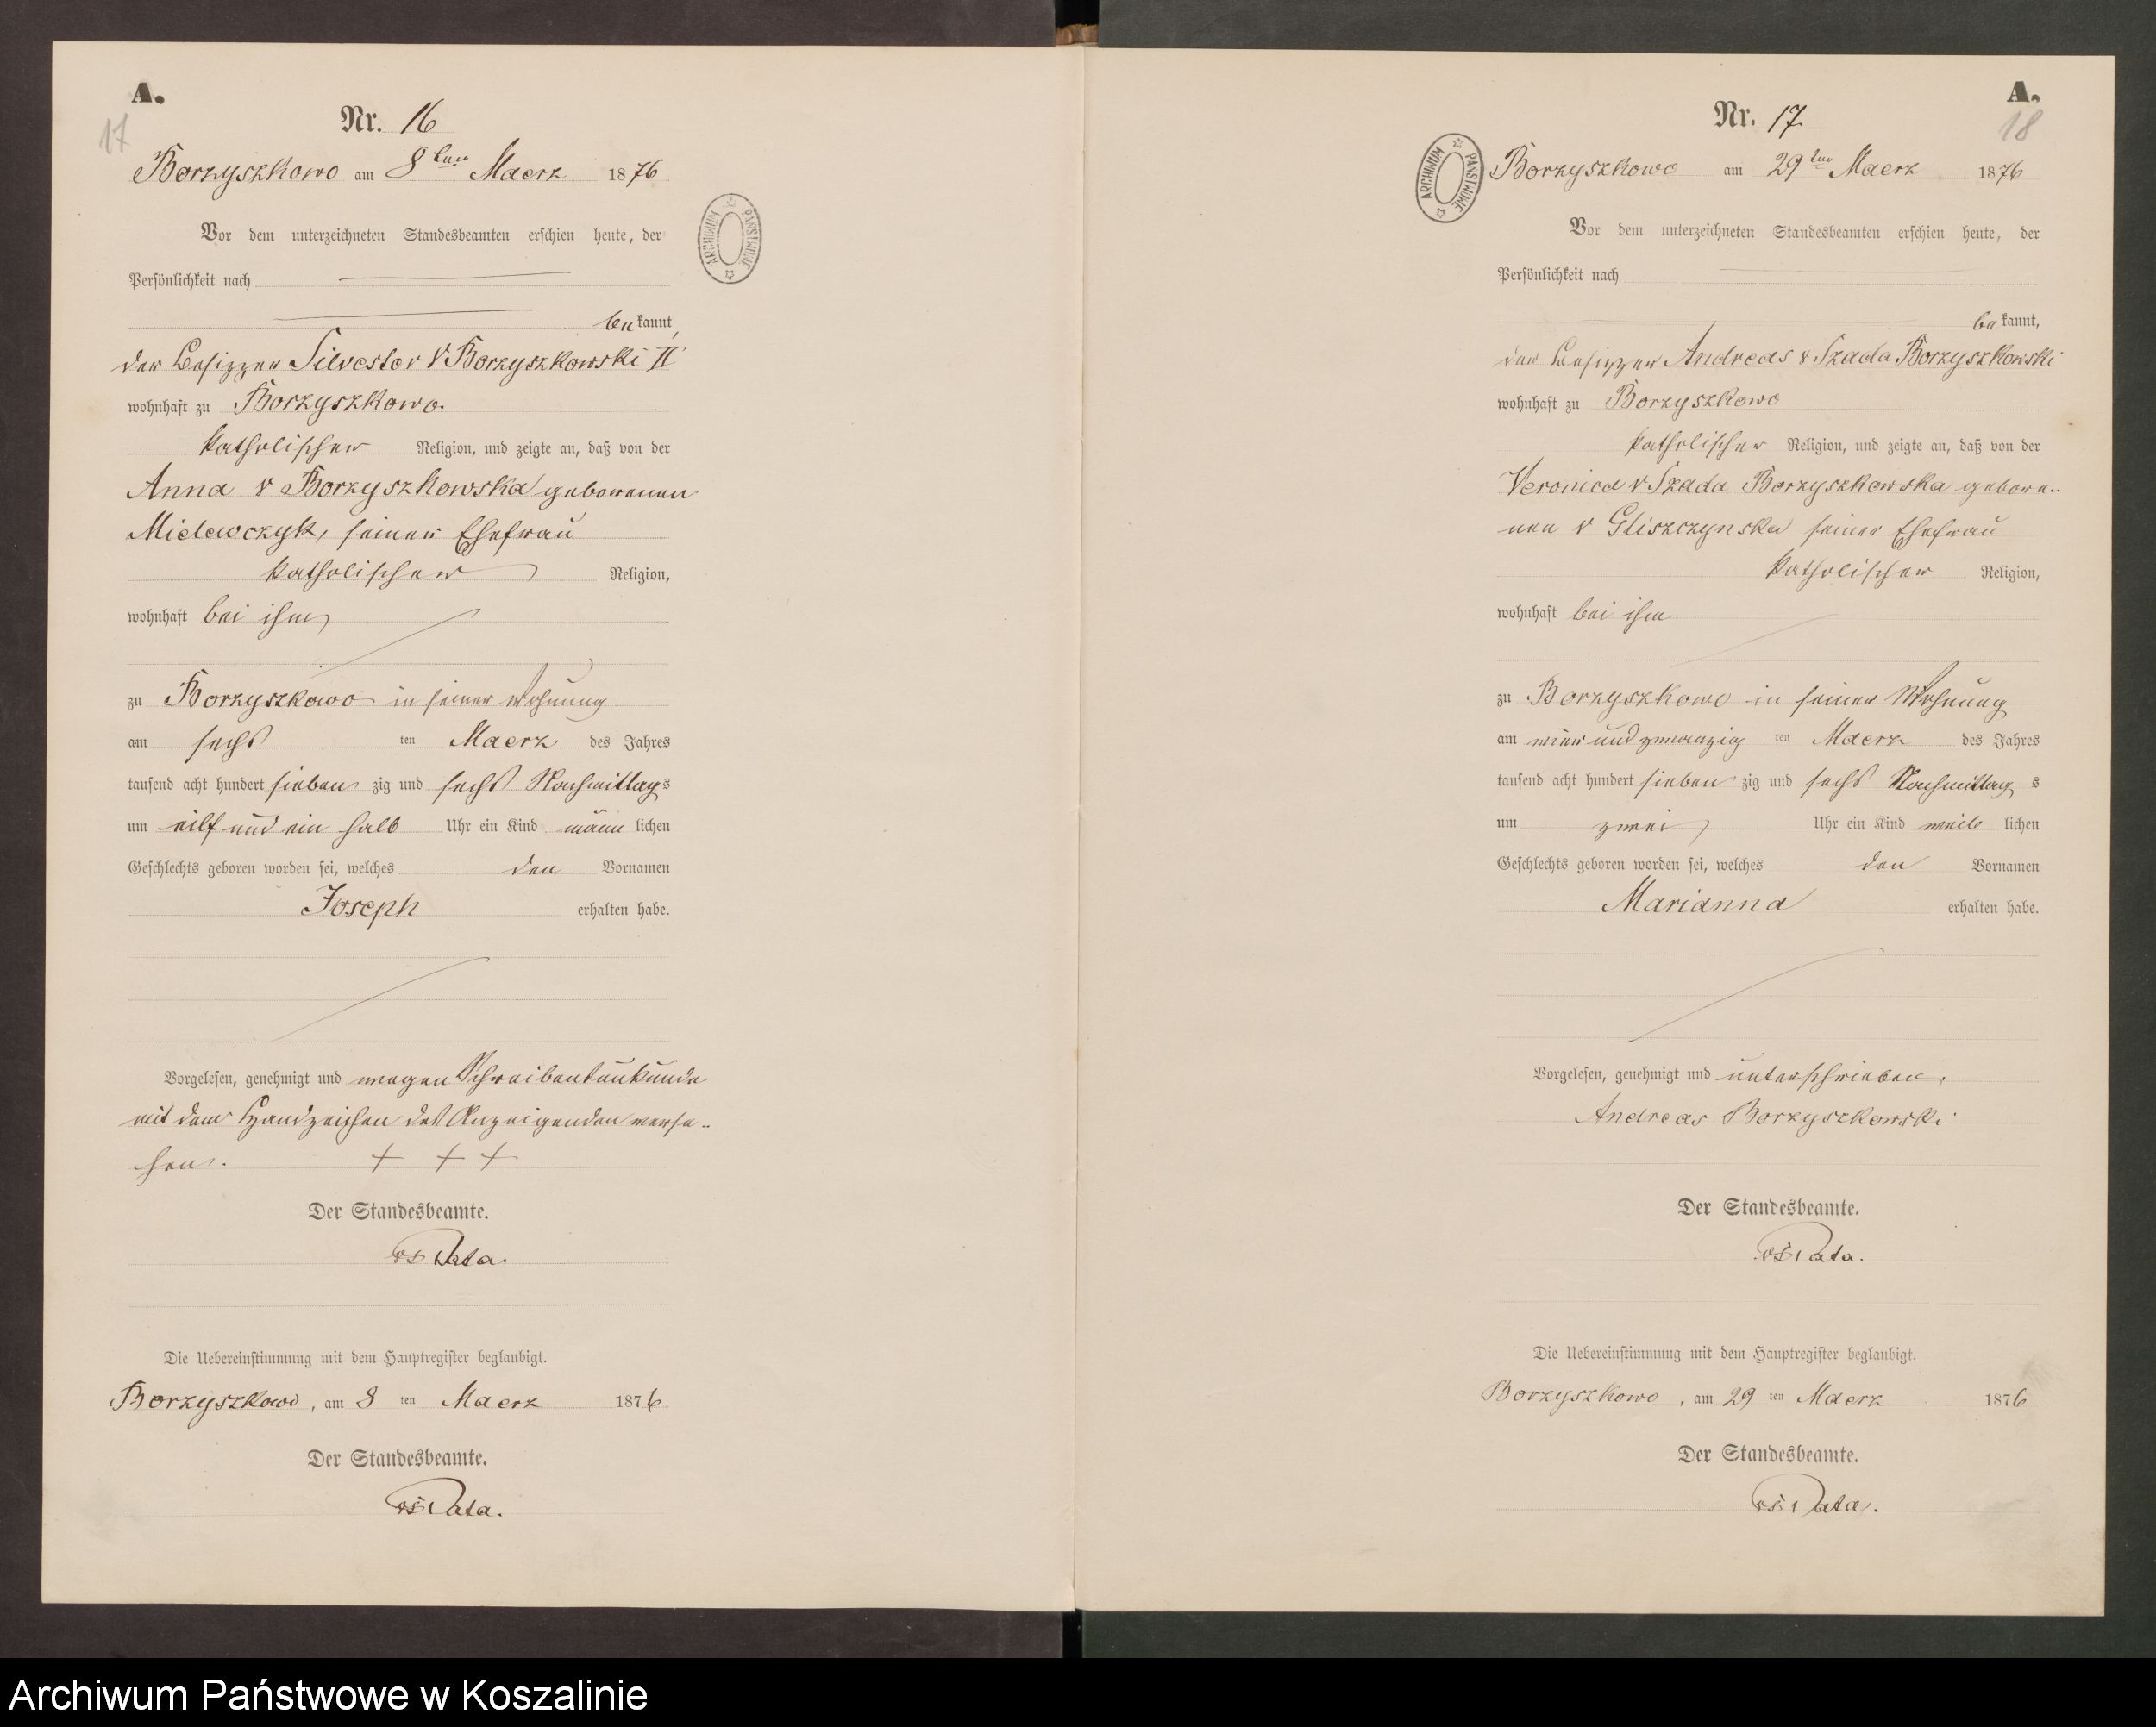 A.
17
Nr. 16
Borzyszkowo am 8ten Maerz 1876
ARCHIWUM PAŃSTWOWE
Vor dem unterzeichneten Standesbeamten erschien heute, der
Persönlichkeit nach
bekannt,
der Besizzer Silvester v Borzyszkowski II
wohnhaft zu Borzyszkowo.
katholischer Religion, und zeigte an, daß von der
Anna v Borzyszkowska geborenen
Mielewczyk, seiner Ehefrau
katholischer Religion,
wohnhaft bei ihm
zu Borzyszkowo in seiner Wohnung
am sechsten Maerz des Jahres
tausend acht hundert siebenzig und sechs Nachmittags
um eilf und ein halb Uhr ein Kind männlichen
Geschlechts geboren worden sei, welches den Vornamen
Joseph erhalten habe.
Vorgelesen, genehmigt und wegen Schreibensunkunde
mit dem Handzeichen des Anzeigenden verse-
hen. + + +
Der Standesbeamte.
Pata.
Die Uebereinstimmung mit dem Hauptregister beglaubigt.
Borzyszkowo, am 8ten Maerz 1876
Der Standesbeamte.
Pata.
A.
18
Nr. 17
Borzyszkowo am 29ten Maerz 1876
ARCHIWUM PAŃSTWOWE
Vor dem unterzeichneten Standesbeamten erschien heute, der
Persönlichkeit nach
bekannt,
der Besizzer Andreas v Szada Borzyszkowski
wohnhaft zu Borzyszkowo
katholischer Religion, und zeigte an, daß von der
Veronica v Szada Borzyszkowska gebore-
nen v Gliszczynska seiner Ehefrau
katholischer Religion,
wohnhaft bei ihm
zu Borzyszkowo in seiner Wohnung
am vier und zwanzigten Maerz des Jahres
tausend acht hundert siebenzig und sechs Nachmittags
um zwei Uhr ein Kind weiblichen
Geschlechts geboren worden sei, welches den Vornamen
Marianna erhalten habe.
Vorgelesen, genehmigt und unterschrieben,
Andreas Borzyszkowski
Der Standesbeamte.
Pata.
Die Uebereinstimmung mit dem Hauptregister beglaubigt.
Borzyszkowo, am 29ten Maerz 1876
Der Standesbeamte.
Pata.
Archiwum Państwowe w Koszalinie